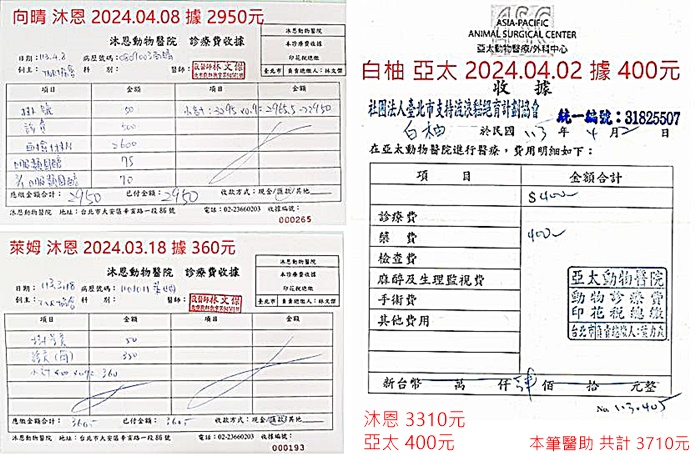 向晴 沐恩 2024.04.08 據 2950元
沐恩動物醫院 診療費收據
沐恩動物醫院
本診療費收據
印花稅總繳
臺北市 負責總繳人：林文傑
日期：113.4.8 病歷號碼：
飼主： 科 別： 醫師：
醫師林文傑
項目 金額 項目 金額
掛號 50
500
2600
75
70
應繳金額合計：2950 已付金額：2950 收款方式：現金/匯款/其他
沐恩動物醫院 地址：台北市大安區辛亥路一段86號 電話：02-23660203 收據編號：
000265
萊姆 沐恩 2024.03.18 據 360元
沐恩動物醫院 診療費收據
沐恩動物醫院
本診療費收據
印花稅總繳
臺北市 負責總繳人：林文傑
日期：113.3.18 病歷號碼：
飼主： 科 別： 醫師：
醫師林文傑
項目 金額 項目 金額
50
350
360
應繳金額合計： 已付金額： 收款方式：現金/匯款/其他
沐恩動物醫院 地址：台北市大安區辛亥路一段86號 電話：02-23660203 收據編號：
000193
ASIA-PACIFIC
ANIMAL SURGICAL CENTER
亞太動物醫療/外科中心
白柚 亞太 2024.04.02 據 400元
收 據
社團法人臺北市支持流浪貓絕育計劃協會
統一編號：31825507
白柚 於民國 113 年 4 月 2 日
在亞太動物醫院進行醫療，費用明細如下：
項 目 金額合計
$400
診療費
藥 費 400
檢查費
麻醉及生理監視費
手術費
其他費用
亞太動物醫院
動物診療費
印花稅總繳
新台幣 萬 仟 肆 佰 拾 元整
No. 113.405
沐恩 3310元
亞太 400元
本筆醫助 共計 3710元